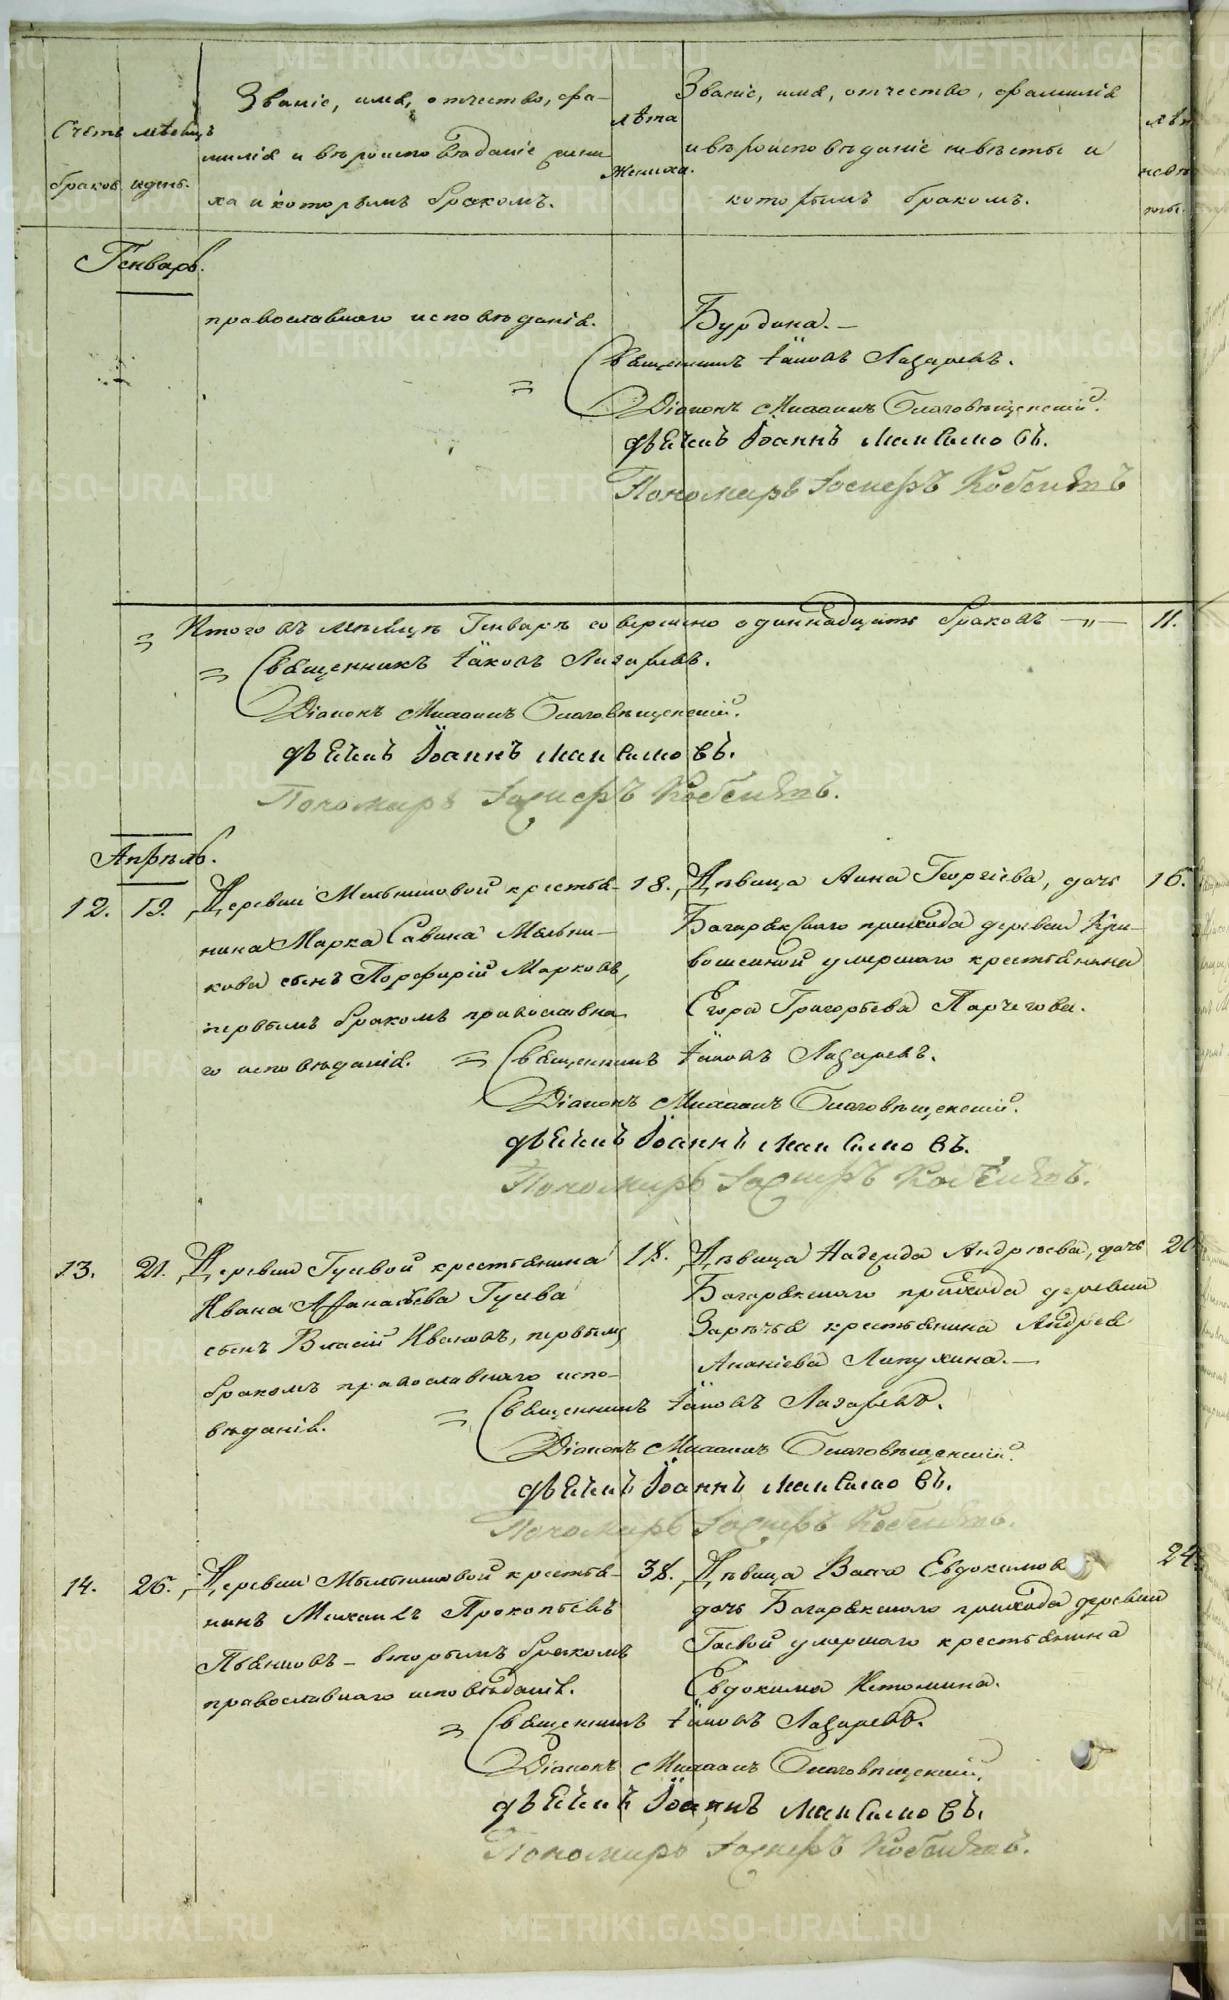 Счетъ браковъ
мѣсяцъ и день.
Званіе, имя, отчество, фа-
милія и вѣроисповѣданіе жени-
ха и которымъ бракомъ.
лѣта
жениха.
Званіе, имя, отчество, фамилія
и вѣроисповѣданіе невѣсты и
которымъ бракомъ.
Генварь.
православнаго исповѣданія.
Бурдина.
Священникъ Іаковъ Лазаревъ.
Діаконъ Михаилъ Благовѣщенскій.
дьячикъ Іоаннъ Максимовъ.
Пономарь
Итого въ мѣсяцѣ Генварѣ совершено одиннадцать браковъ — 11.
Священникъ Іаковъ Лазаревъ.
Діаконъ Михаилъ Благовѣщенскій.
дьячикъ Іоаннъ Максимовъ.
Пономарь
Апрѣль.
12. 19. Деревни Мельниковой крестья-
нина Марка Савина Мельни-
кова сынъ Порфирій Марковъ,
первымъ бракомъ православна-
го исповѣданія.
18.
Дѣвица Анна Георгіева, дочь
Багарякскаго прихода деревни Кри-
вошеиной умершаго крестьянина
Егора Григорьева Парчегова.
16.
Священникъ Іаковъ Лазаревъ.
Діаконъ Михаилъ Благовѣщенскій.
дьячикъ Іоаннъ Максимовъ.
Пономарь
13. 21. Деревни Гусевой крестьянина
Ивана Афанасьева Гусева
сынъ Власій Ивановъ, первымъ
бракомъ православнаго испо-
вѣданія.
18.
Дѣвица Надежда Андреева, дочь
Багарякскаго прихода деревни
Зарѣчья крестьянина Андрея
Ананіева Лапухина.
20
Священникъ Іаковъ Лазаревъ.
Діаконъ Михаилъ Благовѣщенскій.
дьячикъ Іоаннъ Максимовъ.
Пономарь
14. 26. Деревни Мельниковой крестья-
нинъ Михаилъ Прокопьевъ
Пьянковъ - вторымъ бракомъ
православнаго исповѣданія.
38.
Дѣвица Васса Евдокимов
дочь Багарякскаго прихода деревни
Гаевой умершаго крестьянина
Евдокима Истомина.
24
Священникъ Іаковъ Лазаревъ.
Діаконъ Михаилъ Благовѣщенскій.
дьячикъ Іоаннъ Максимовъ.
Пономарь
METRIKI.GASO-URAL.RU